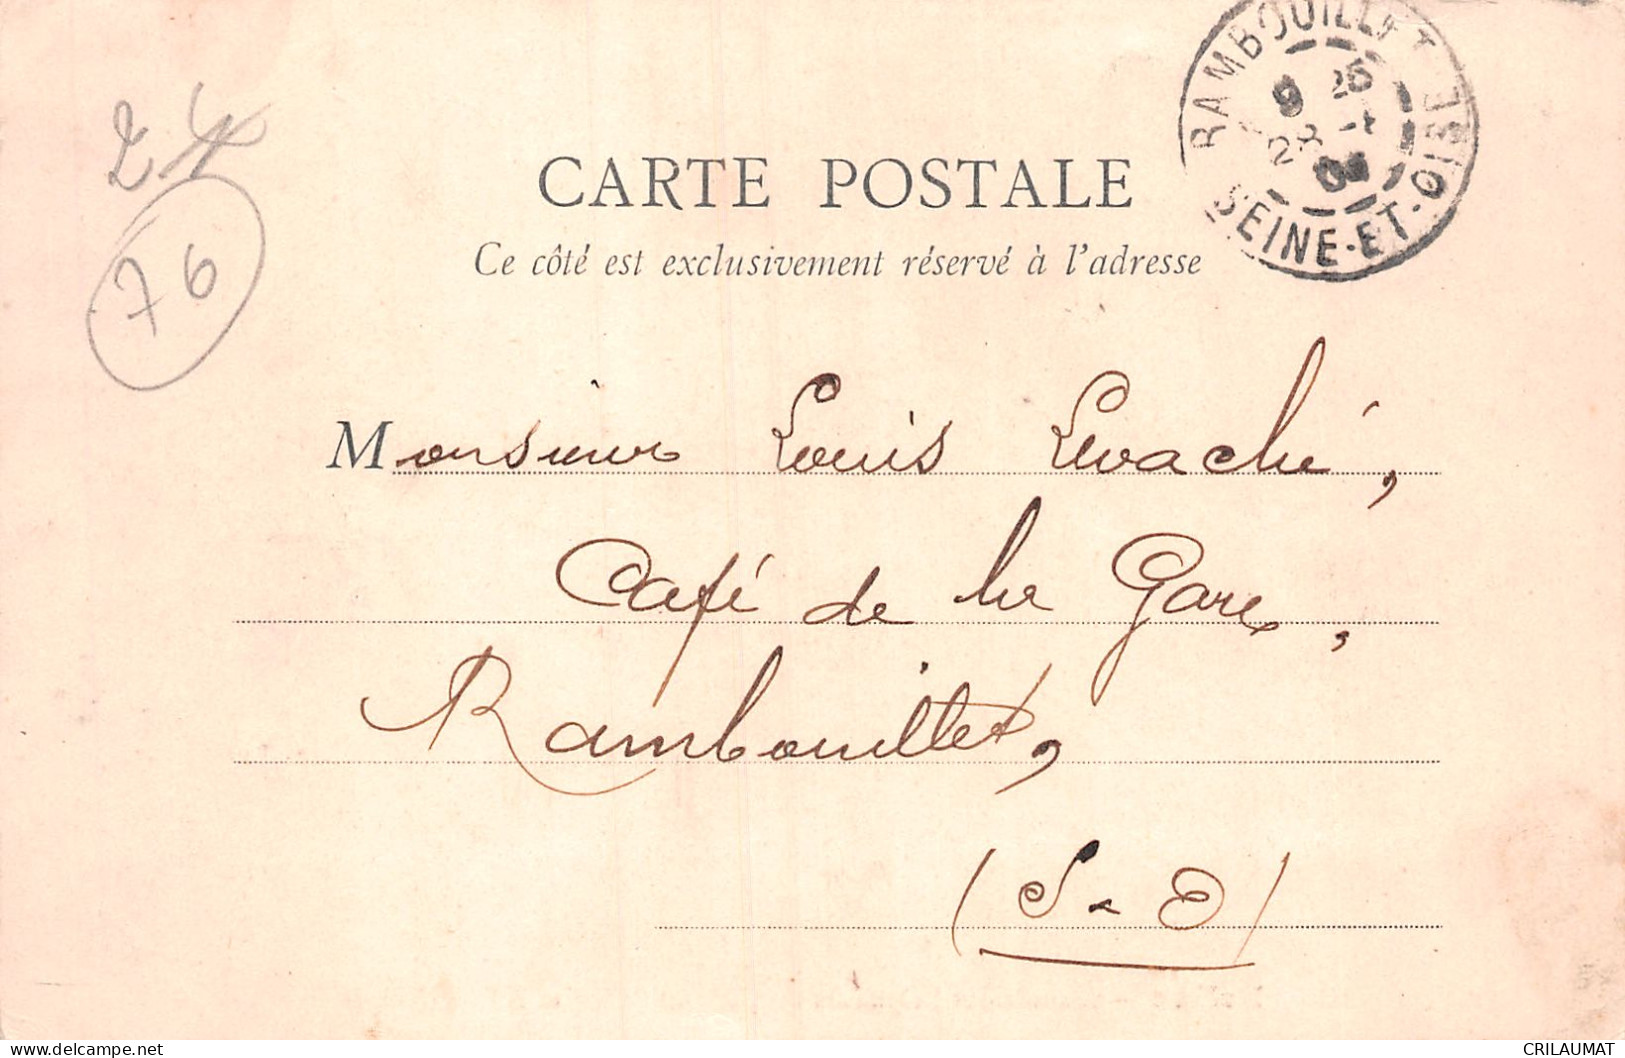 RAMBOUILLET
9 25
28
SEINE-ET-OISE
76
CARTE POSTALE
Ce côté est exclusivement réservé à l'adresse
Monsieur Louis Levaché,
Café de la Gare,
Rambouillet,
(S-O)
delcampe.net
CRILAUMAT